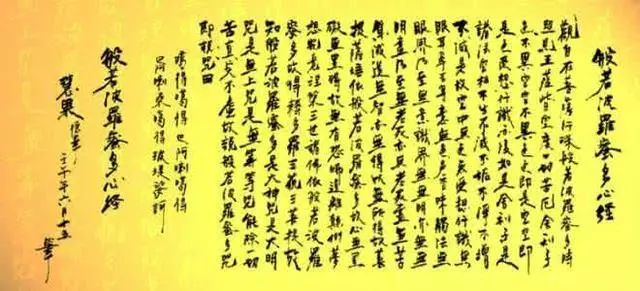 般若波羅蜜多心經
觀自在菩薩行深般若波羅蜜多時
照見五蘊皆空度一切苦厄舍利子
色不異空空不異色色即是空空即
是色受想行識亦復如是舍利子是
諸法空相不生不滅不垢不淨不增
不減是故空中無色無受想行識無
眼耳鼻舌身意無色聲香味觸法無
眼界乃至無意識界無無明亦無無
明盡乃至無老死亦無老死盡無苦
集滅道無智亦無得以無所得故菩
提薩埵依般若波羅蜜多故心無罣
礙無罣礙故無有恐怖遠離顛倒夢
想究竟涅槃三世諸佛依般若波羅
蜜多故得耨多羅三藐三菩提故
知般若波羅蜜多是大神咒是大明
咒是無上咒是無等等咒能除一切
苦真實不虛故說般若波羅蜜多咒
即說咒曰
得噶得巴阿喇噶得
阿喇桑噶得
般若波羅蜜多心經
壬午年六月十五